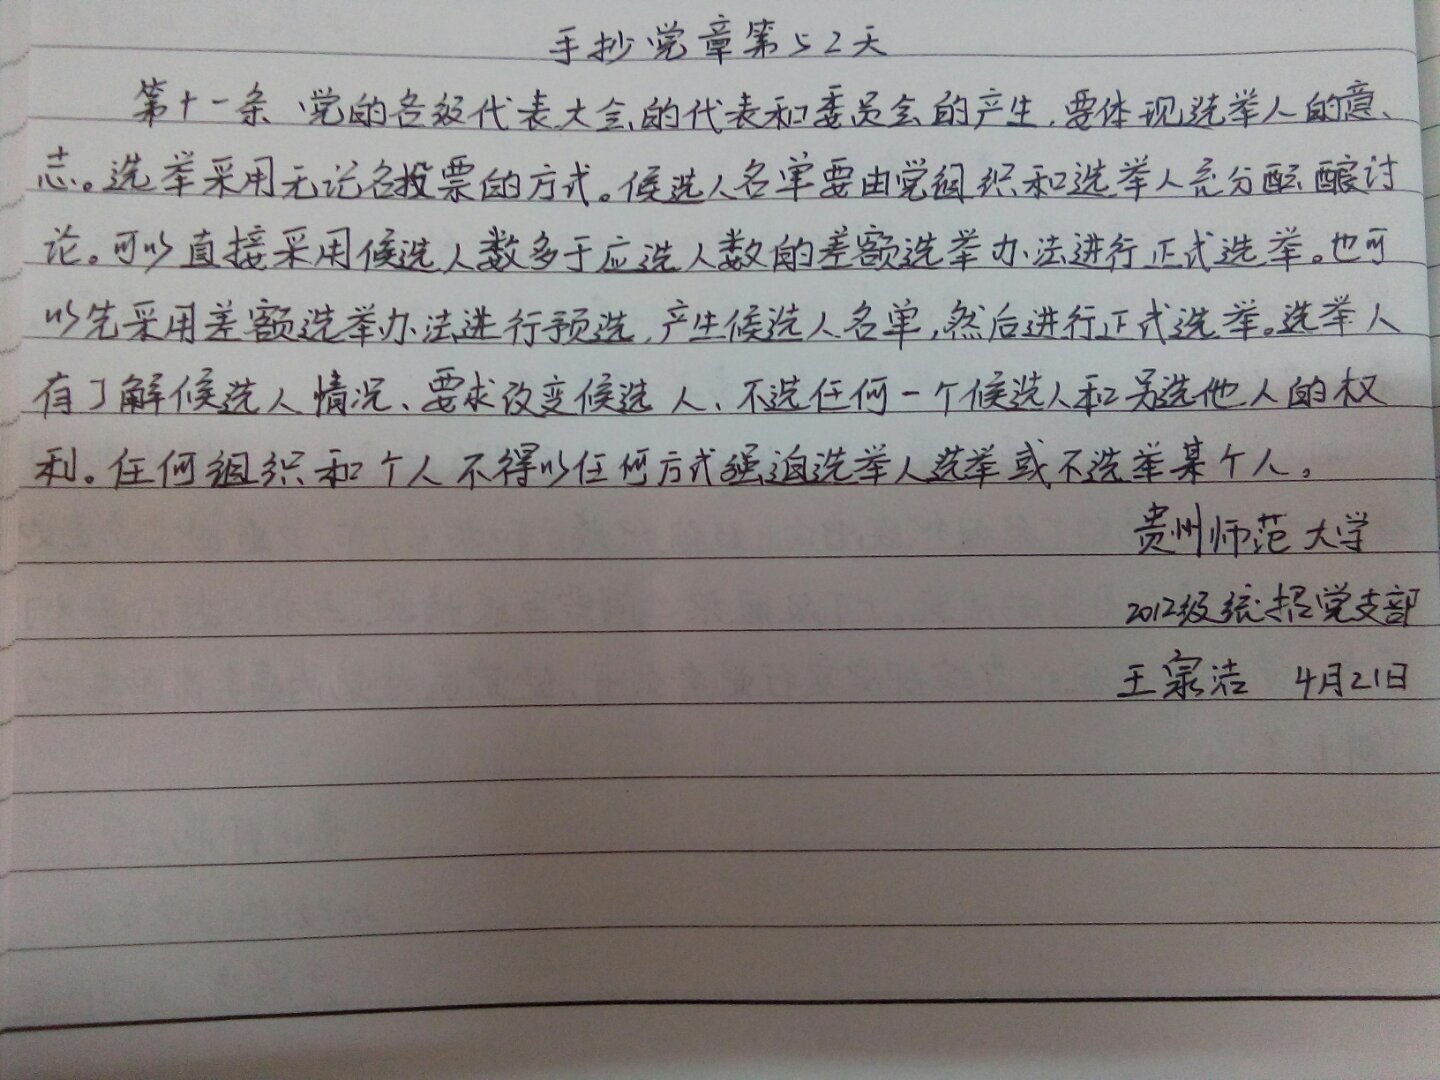 手抄党章第52天
第十一条 党的各级代表大会的代表和委员会的产生,要体现选举人的意
志。选举采用无记名投票的方式。候选人名单要由党组织和选举人充分酝酿讨
论。可以直接采用候选人数多于应选人数的差额选举办法进行正式选举。也可
以先采用差额选举办法进行预选,产生候选人名单,然后进行正式选举。选举人
有了解候选人情况、要求改变候选人、不选任何一个候选人和另选他人的权
利。任何组织和个人不得以任何方式强迫选举人选举或不选举某个人。
贵州师范大学
2012级统招党支部
王家洁 4月21日